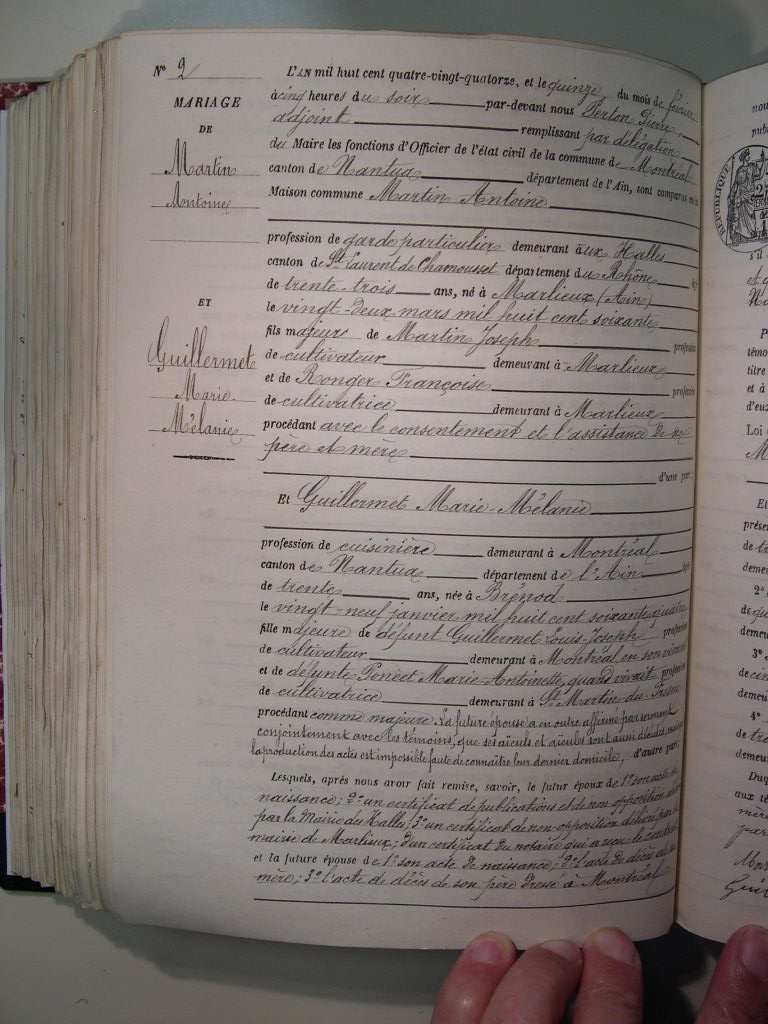 N° 2
MARIAGE
DE
Martin
Antoine
ET
Guillermet
Marie
Mélanie
L'AN mil huit cent quatre-vingt-quatorze, et le quinze du mois de février
à cinq heures du soir par-devant nous Perton Pierre,
adjoint remplissant par délégation
des Maire les fonctions d'Officier de l'état civil de la commune de Montréal
canton de Nantua département de l'Ain, sont comparus en la
Maison commune Martin Antoine
profession de garde particulier demeurant aux Halles
canton de St Laurent de Chamousset département du Rhône
de trente-trois ans, né à Marlieux (Ain)
le vingt-deux mars mil huit cent soixante
fils majeur de Martin Joseph profession
de cultivateur demeurant à Marlieux
et de Ronger Françoise profession
de cultivatrice demeurant à Marlieux
procédant avec le consentement et l'assistance de ses
père et mère
d'une part,
Et Guillermet Marie-Mélanie
profession de cuisinière demeurant à Montréal
canton de Nantua département de l'Ain
de trente ans, née à Brénod
le vingt-neuf janvier mil huit cent soixante
fille majeure de défunt Guillermet Louis Joseph profession
de cultivateur demeurant à Montréal en son vivant
et de défunte Poncet Marie-Antoinette, quand vivait profession
de cultivatrice demeurant à St Martin-du-Fresne
procédant comme majeure. La future épouse a en outre affirmé par serment
conjointement avec les témoins, que ses aïeuls et aïeules sont aussi décédés, mais
la production des actes est impossible faute de connaître leur dernier domicile, d'autre part.
Lesquels, après nous avoir fait remise, savoir, le futur époux de 1° son acte de
naissance; 2° un certificat de publications et de non opposition
par la Mairie des Halles; 3° un certificat de non-opposition délivré par la
mairie de Marlieux; d'un certificat du notaire qui a reçu le contrat
et la future épouse de 1° son acte de naissance; 2° l'acte de décès de sa
mère; 3° l'acte de décès de son père dressé à Montréal
nous
publ
RÉPUBLIQUE
s'il
témo
titre
et à
d'eux
Loi d
Et
présen
de
demeu
2°
de
demeu
3°
de cin
demeu
4°
de tro
demeu
Duq
aux té
mère
par